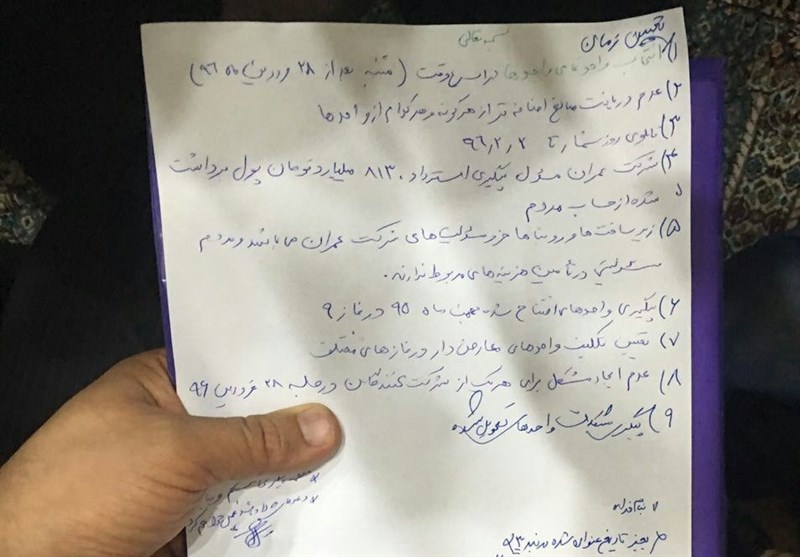 بسمه تعالی
تعیین زمان
۱) انتخاب واحدهای واحدها در اسرع وقت (شنبه بعد از ۲۸ فروردین ماه ۹۶)
۲) عدم دریافت مبالغ اضافه تر از هرگونه و هر کدام از واحدها
۳) تابلوی روزشمار تا ۹۶٫۲٫۲
۴) شرکت عمران مسئول پیگیری استرداد ۸۱۳۰ میلیارد تومان پول برداشت
شده از حساب مردم
۵) زیرساخت ها و روبناها جزو مسئولیت های شرکت عمران می باشد و مردم
مسئولیتی در تأمین هزینه های مربوط ندارند.
۶) پیگیری واحدهای افتتاح شده بهمن ماه ۹۵ در فاز ۹
۷) تعیین تکلیف واحدهای معارض دار در فازهای مختلف
۸) عدم ایجاد مشکل برای هر یک از شرکت کنندگان در جلسه ۲۸ فروردین ۹۶
۹) پیگیری مشکلات واحدهای تحویل شده
بجز تاریخ عنوان شده در بند ۳